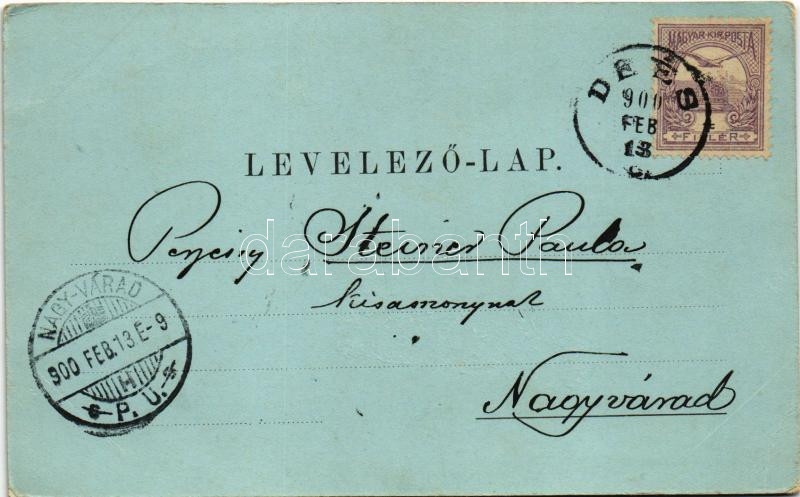 MAGYAR KIR. POSTA
FILLÉR
DEÉS
900
FEB
13
LEVELEZŐ-LAP.
Steiner Paula
kisasszonynak
Nagyvárad
NAGY-VÁRAD
900 FEB. 13 E-9
P. U.
darabanth